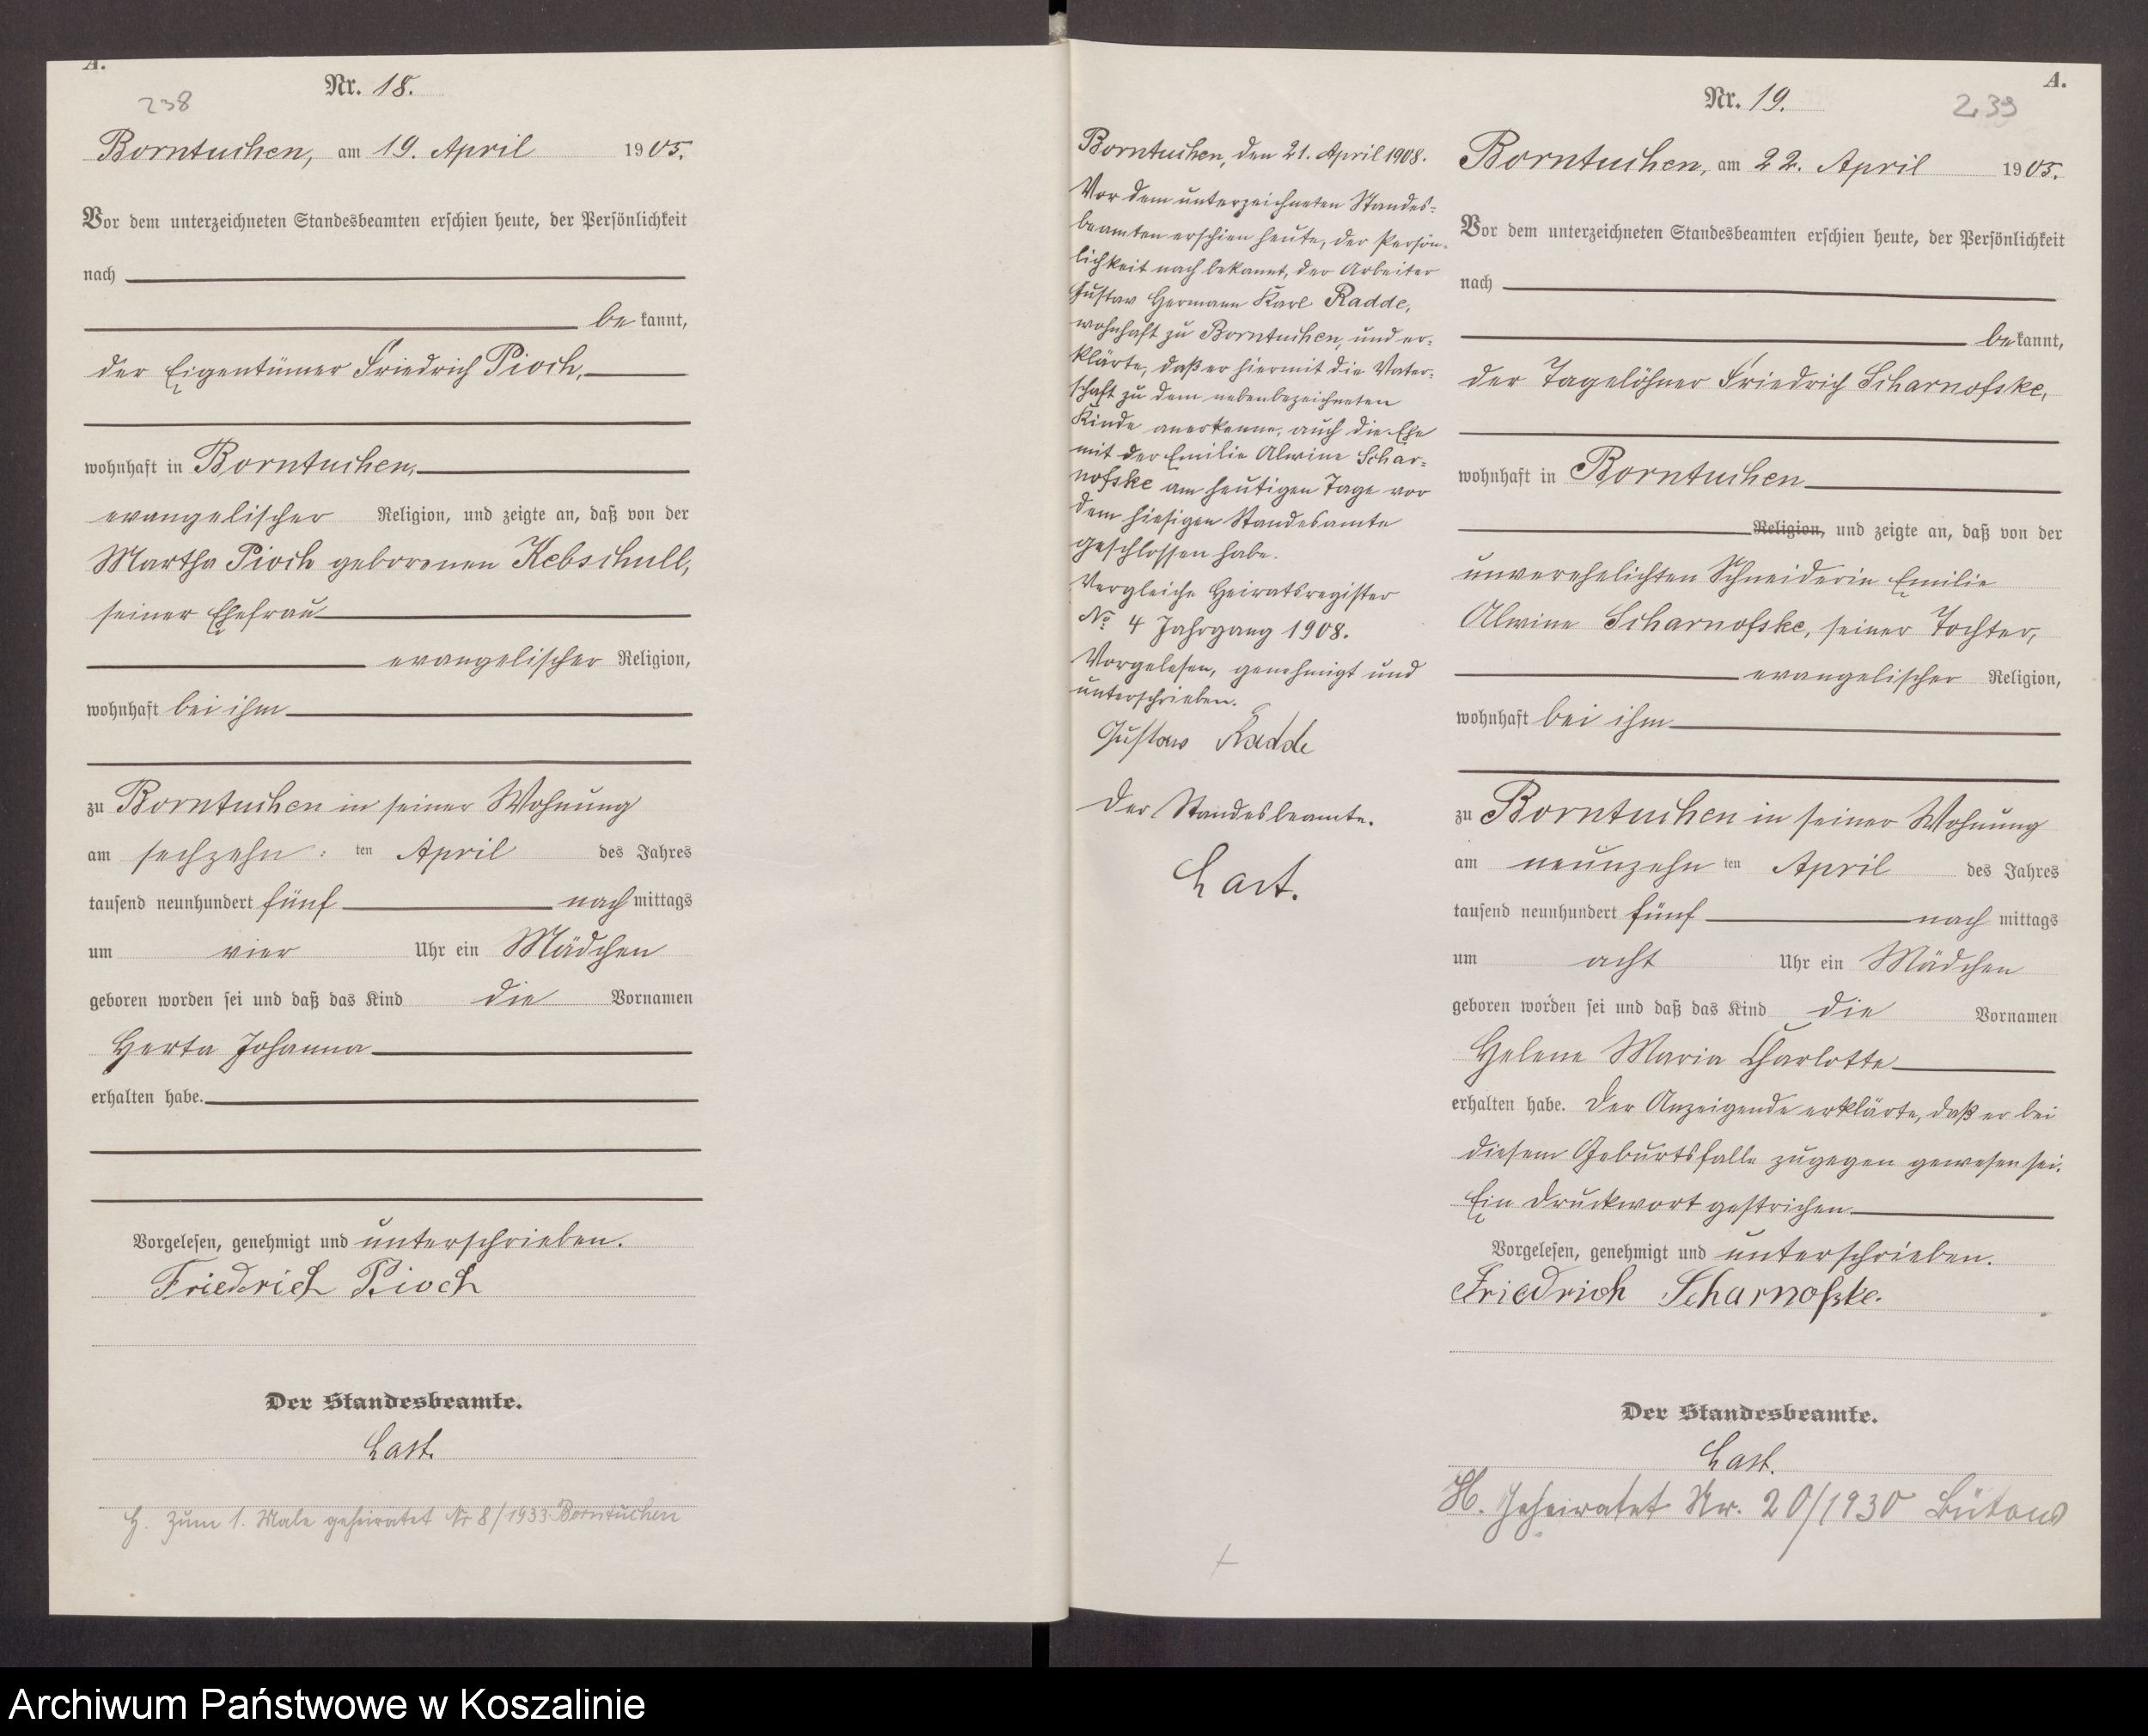 A.
Nr. 18.
238
Borntuchen, am 19. April 1905.
Vor dem unterzeichneten Standesbeamten erschien heute, der Persönlichkeit
nach
be kannt,
der Eigentümer Friedrich Pioch,
wohnhaft in Borntuchen,
evangelischer Religion, und zeigte an, daß von der
Martha Pioch geborenen Kebschull,
seiner Ehefrau
evangelischer Religion,
wohnhaft bei ihm
zu Borntuchen in seiner Wohnung
am sechzehn ten April des Jahres
tausend neunhundert fünf nach mittags
um vier Uhr ein Mädchen
geboren worden sei und daß das Kind die Vornamen
Herta Johanna
erhalten habe.
Vorgelesen, genehmigt und unterschrieben.
Friedrich Pioch
Der Standesbeamte.
Last.
H. Zum 1. Male geheiratet Nr 8/1933 Borntuchen
Borntuchen, den 21. April 1908.
Vor dem unterzeichneten Standes-
beamten erschien heute, der Persön-
lichkeit nach bekannt, der Arbeiter
Gustav Hermann Karl Radde,
wohnhaft zu Borntuchen, und er-
klärte, daß er hiermit die Vater-
schaft zu dem nebenbezeichneten
Kinde anerkenne, auch die Ehe
mit der Emilie Alwine Schar-
nofske am heutigen Tage vor
dem hiesigen Standesamte
geschlossen habe.
Vergleiche Heiratsregister
No 4 Jahrgang 1908.
Vorgelesen, genehmigt und
unterschrieben.
Gustav Radde
Der Standesbeamte.
Last.
A.
Nr. 19.
239
Borntuchen, am 22. April 1905.
Vor dem unterzeichneten Standesbeamten erschien heute, der Persönlichkeit
nach
be kannt,
der Tagelöhner Friedrich Scharnofske,
wohnhaft in Borntuchen
Religion, und zeigte an, daß von der
unverehelichten Schneiderin Emilie
Alwine Scharnofske, seiner Tochter,
evangelischer Religion,
wohnhaft bei ihm
zu Borntuchen in seiner Wohnung
am neunzehn ten April des Jahres
tausend neunhundert fünf nach mittags
um acht Uhr ein Mädchen
geboren worden sei und daß das Kind die Vornamen
Helene Maria Charlotte
erhalten habe. Der Anzeigende erklärte, daß er bei
diesem Geburtsfalle zugegen gewesen sei.
Ein Druckwort gestrichen.
Vorgelesen, genehmigt und unterschrieben.
Friedrich Scharnofske.
Der Standesbeamte.
Last.
H. Geheiratet Nr. 20/1930 Bütow
Archiwum Państwowe w Koszalinie